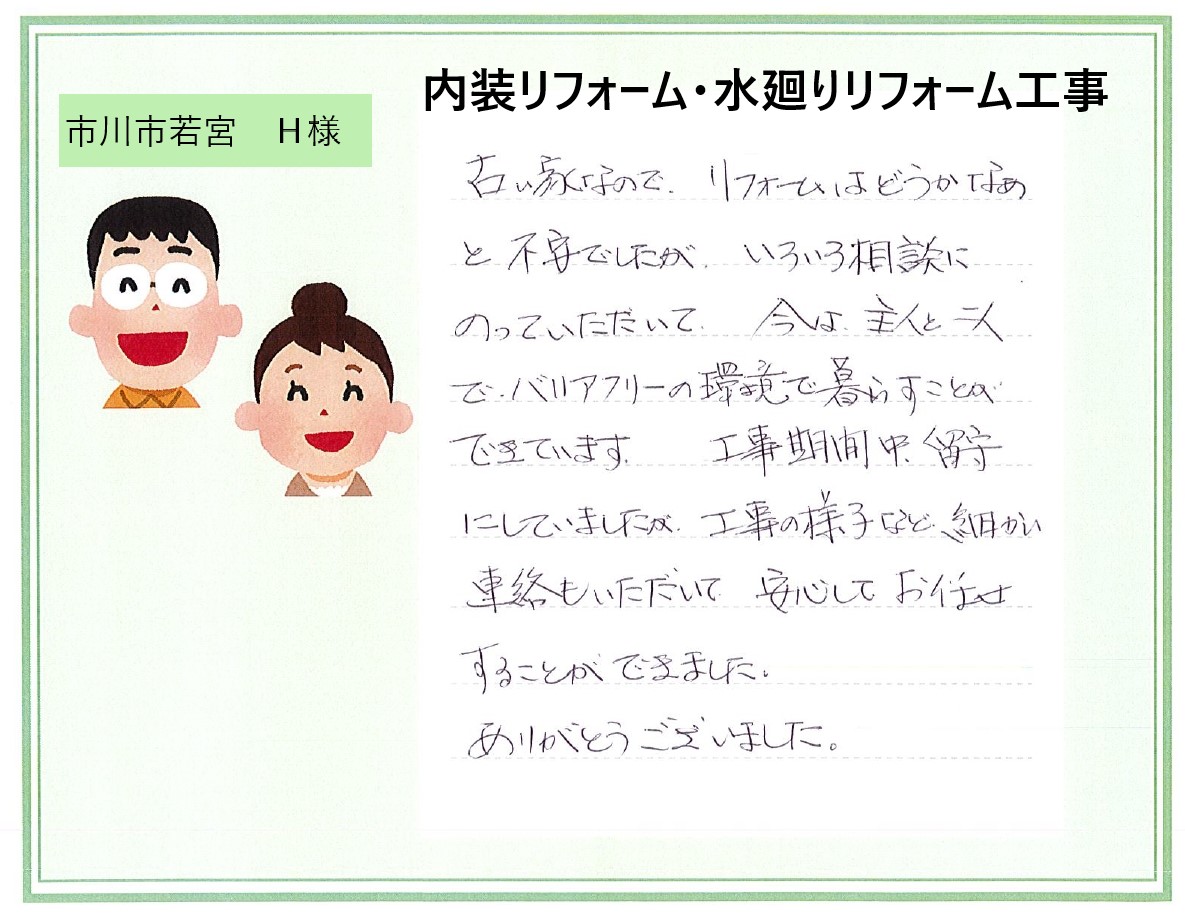 内装リフォーム・水廻りリフォーム工事
市川市若宮　H様
古い家なので、リフォームはどうかなあ
と不安でしたが、いろいろ相談に
のっていただいて、今は、主人と二人
で、バリアフリーの環境で暮らすことが
できています。工事期間中、留守
にしていましたが、工事の様子など、細かい
連絡もいただいて　安心して　お任せ
することができました。
ありがとうございました。